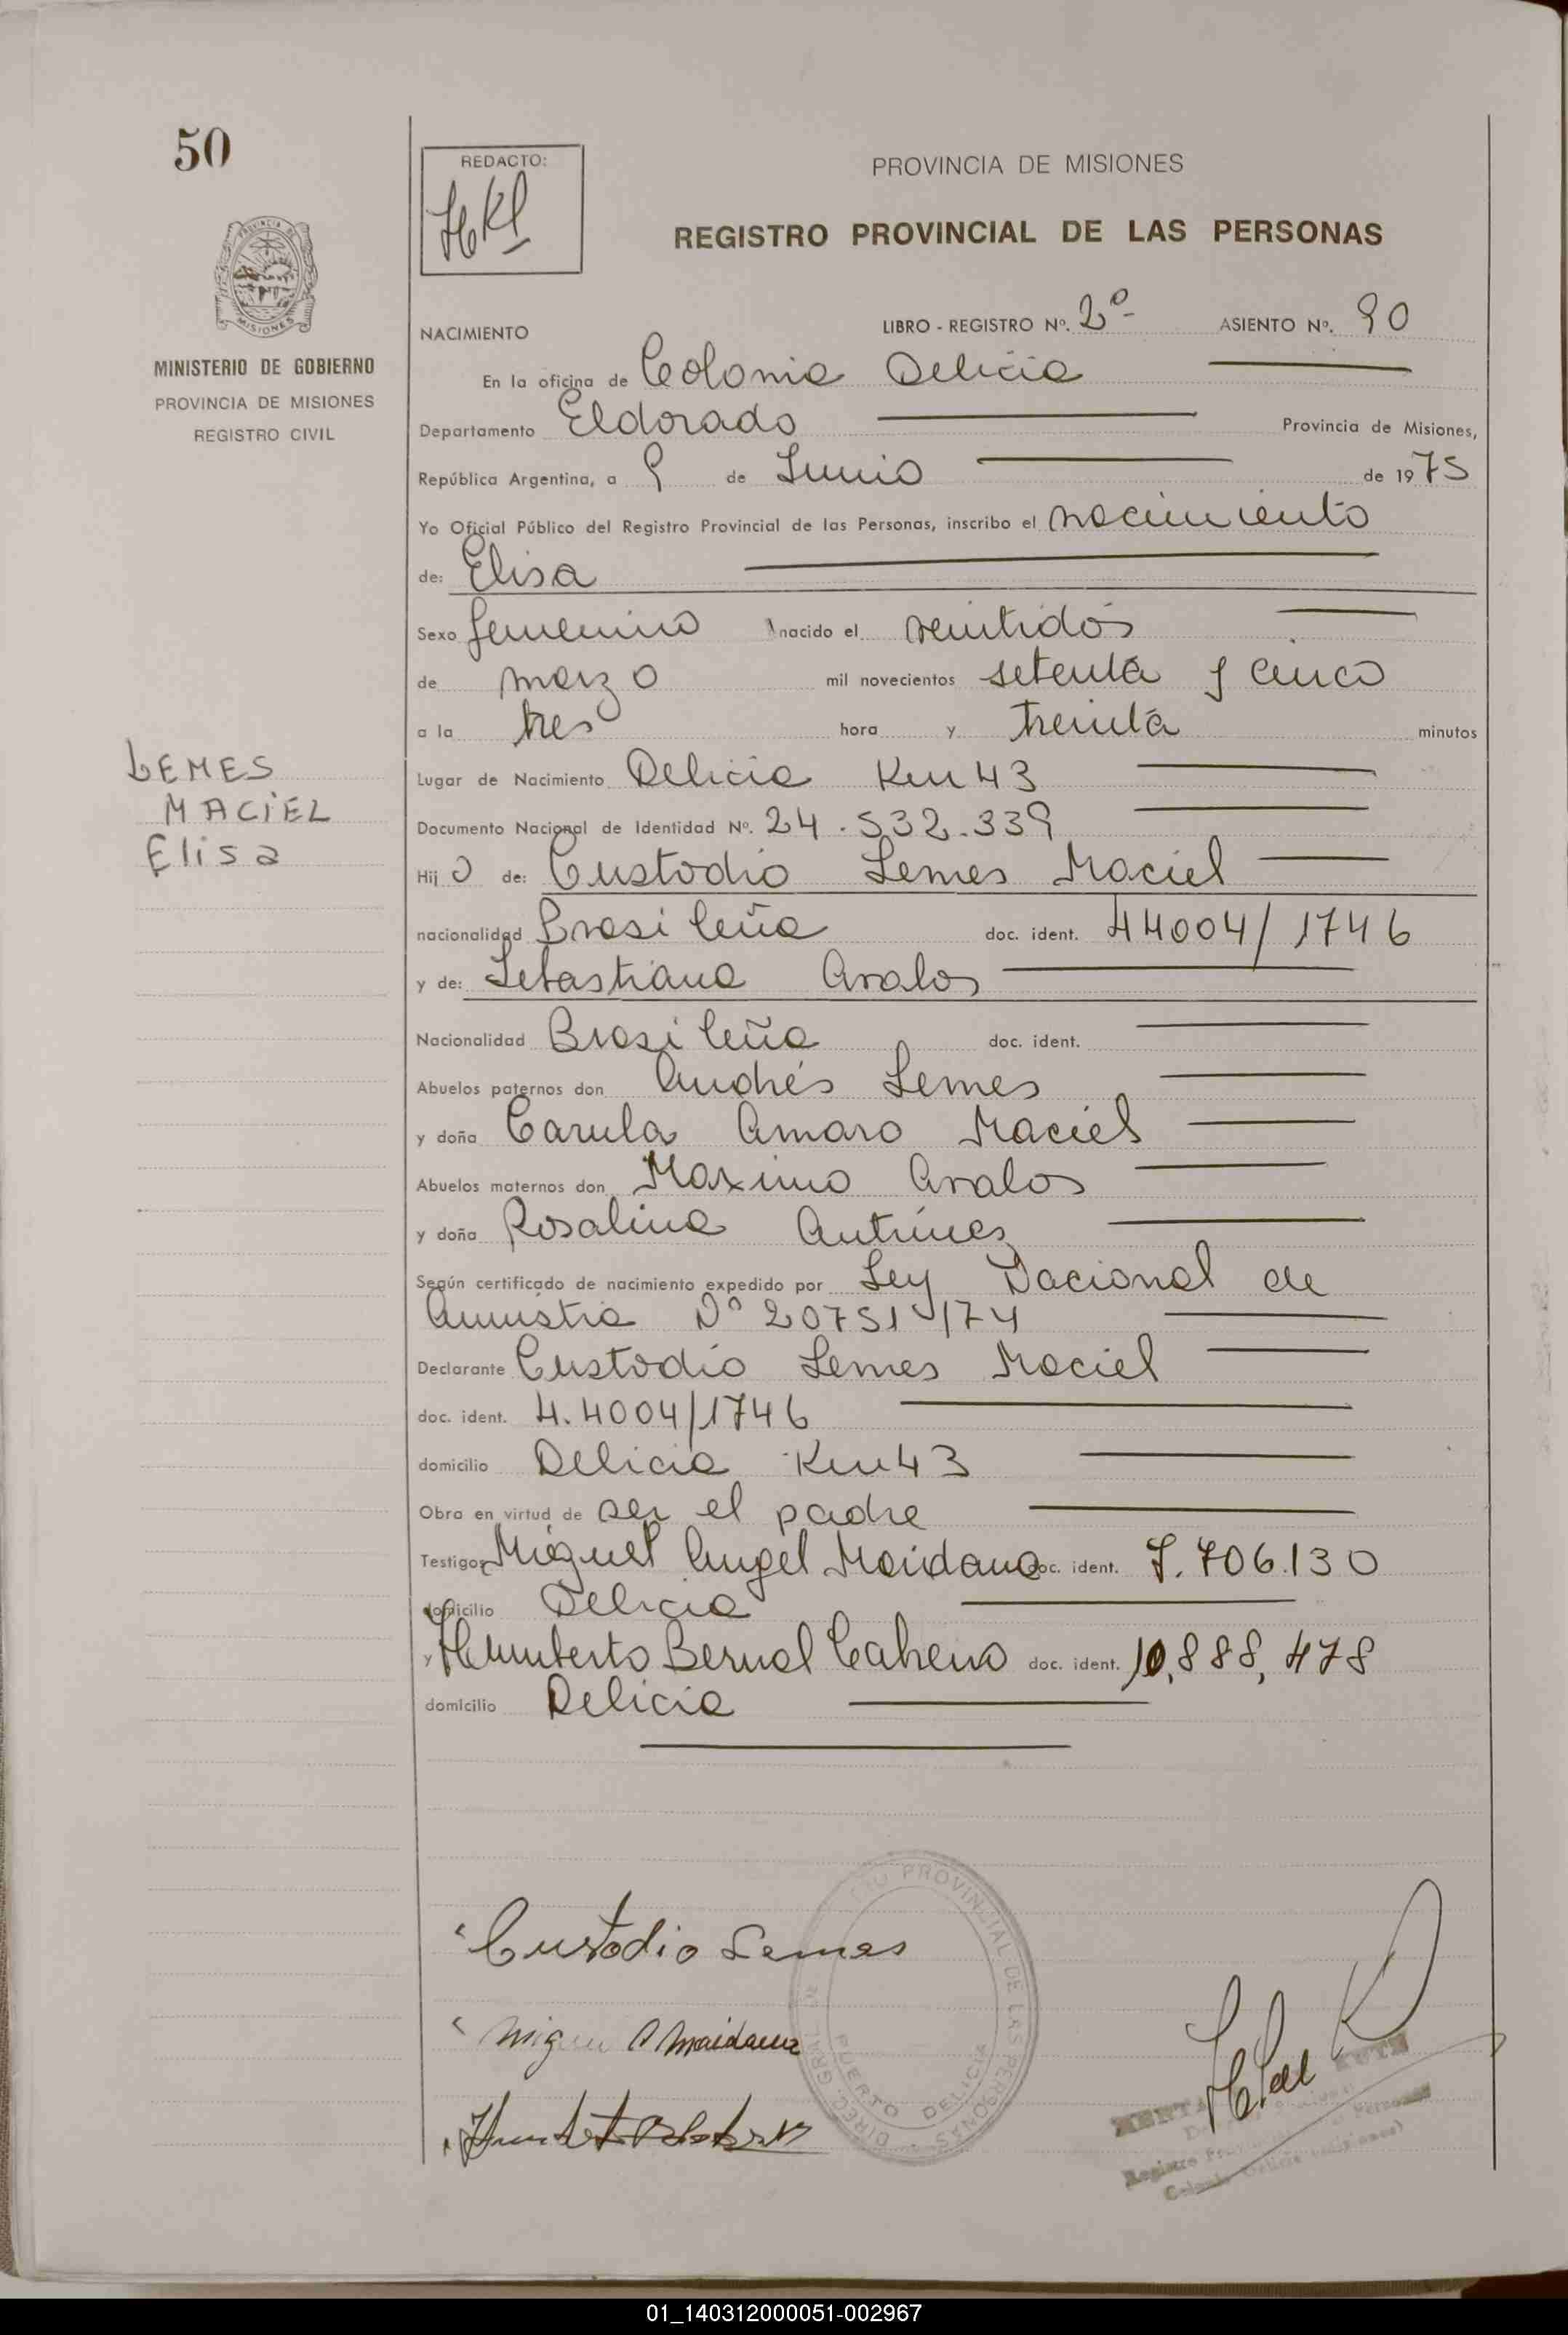 50
REDACTO:
HKl
PROVINCIA DE MISIONES
REGISTRO PROVINCIAL DE LAS PERSONAS
MISIONES
MINISTERIO DE GOBIERNO
PROVINCIA DE MISIONES
REGISTRO CIVIL
NACIMIENTO LIBRO - REGISTRO Nº. 2º ASIENTO Nº. 90
En la oficina de Colonia Delicia
Departamento Eldorado Provincia de Misiones,
República Argentina, a 9 de Junio de 1975
Yo Oficial Público del Registro Provincial de las Personas, inscribo el nacimiento
de: Elisa
Sexo femenino nacido el veintidós
de marzo mil novecientos setenta y cinco
a la tres hora y treinta minutos
LEMES
MACIEL
Elisa
Lugar de Nacimiento Delicia Km 43
Documento Nacional de Identidad Nº. 24.532.339
Hij a de: Custodio Lemes Maciel
nacionalidad Brasileña doc. ident. 44004/1746
y de: Sebastiana Avalos
Nacionalidad Brasileña doc. ident.
Abuelos paternos don Andrés Lemes
y doña Carula Amaro Maciel
Abuelos maternos don Maximo Avalos
y doña Rosalina Antúnez
Según certificado de nacimiento expedido por Ley Nacional de
Amnistia Nº 20751/74
Declarante Custodio Lemes Maciel
doc. ident. 4.4004/1746
domicilio Delicia Km 43
Obra en virtud de ser el padre
Testigos Miguel Angel Maidana doc. ident. 7.706.130
domicilio Delicia
y Humberto Bernal Cabrera doc. ident. 10,888,478
domicilio Delicia
Custodio Lemes
Miguel A Maidana
PROVINCIAL DE LAS PERSONAS
DIREC. GRAL. DE
PUERTO DELICIA
Colonia Delicia (Misiones)
01_140312000051-002967